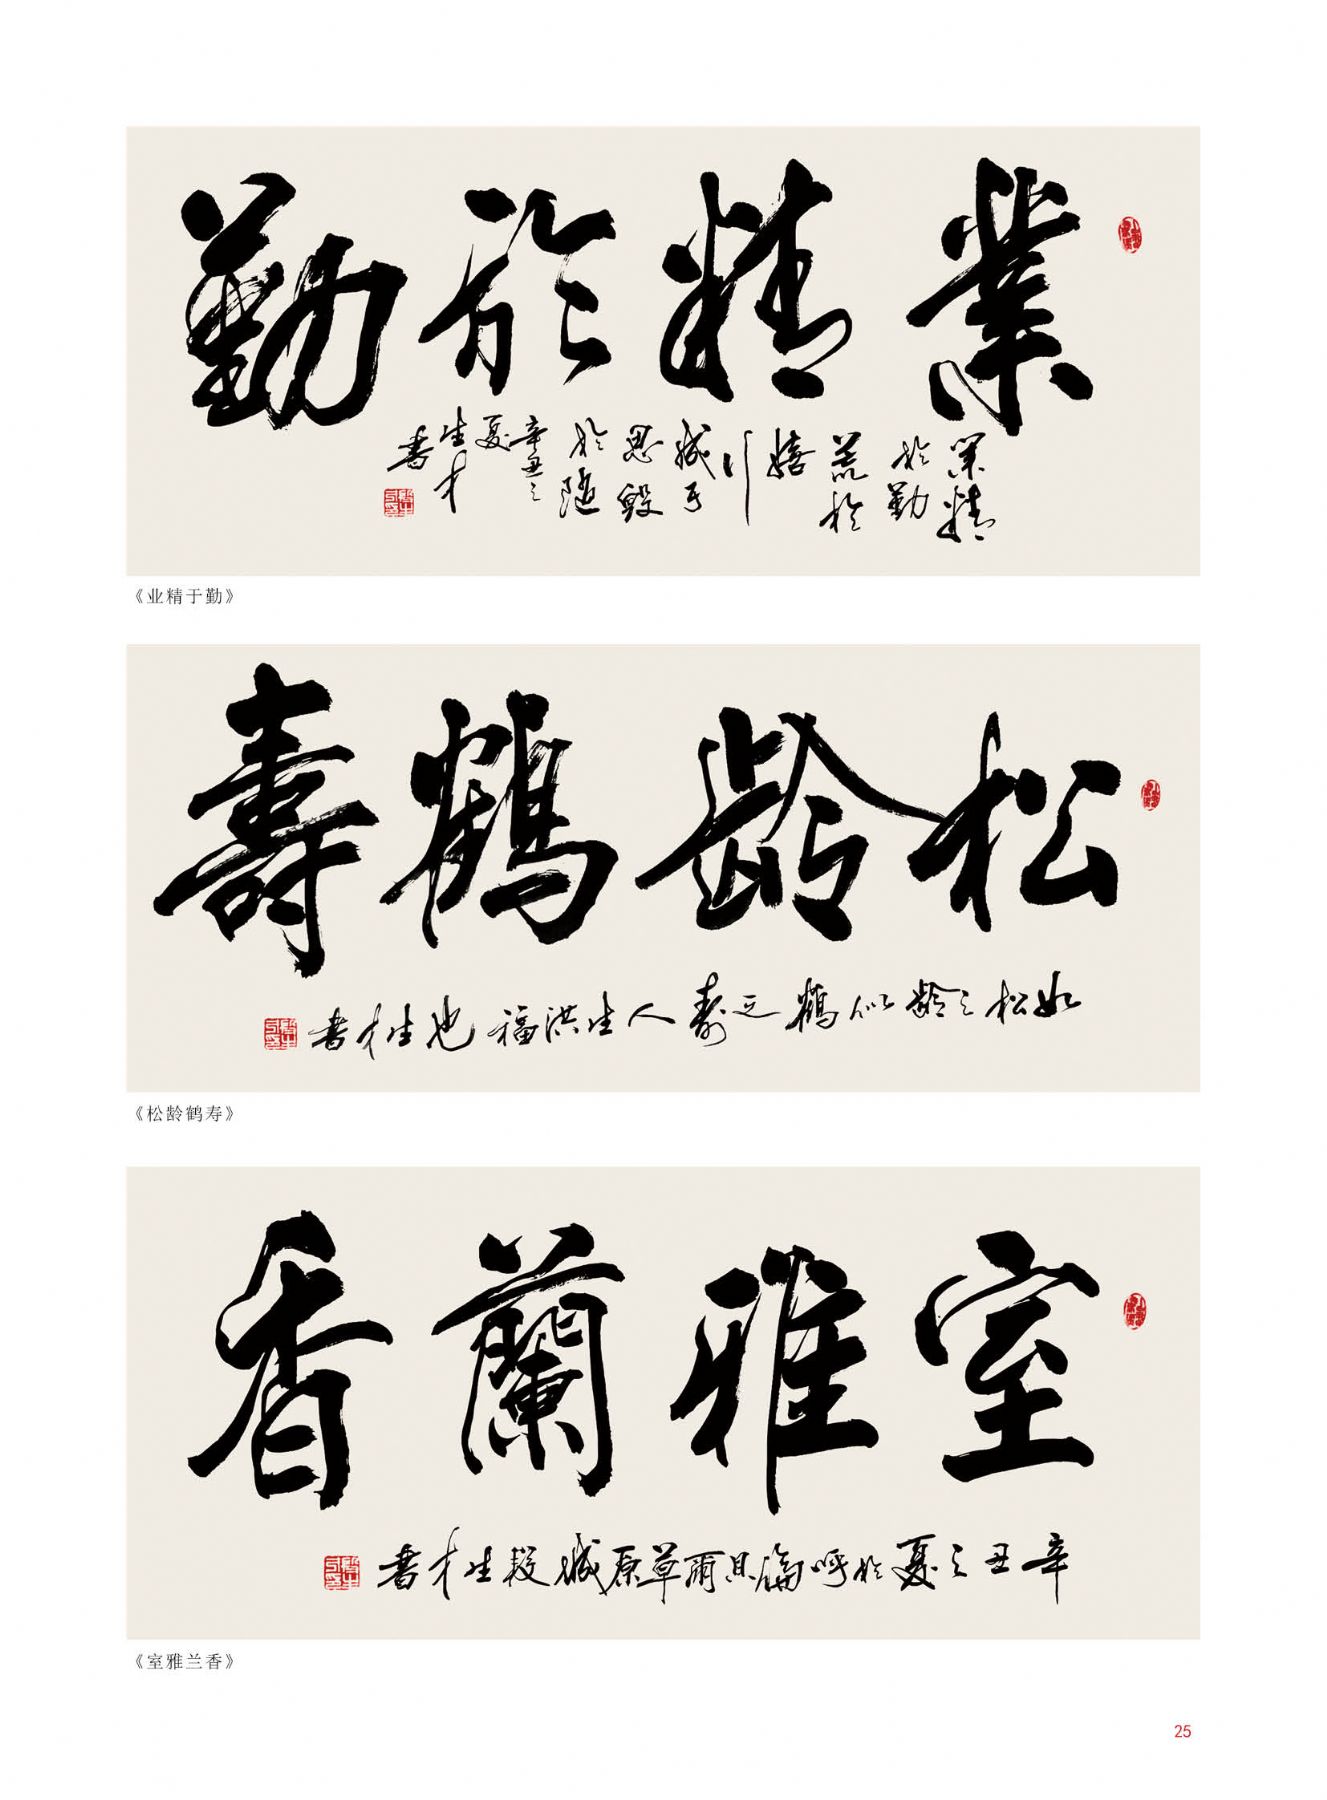 業精於勤
業精
於勤
荒於
嬉
行
成於
思毀
於隨
辛丑之
夏
生才
書
《业精于勤》
松龄鶴壽
如松之龄似鶴之壽人生洪福也生才書
《松龄鹤寿》
室雅蘭香
辛丑之夏於呼倫貝爾草原城段生才書
《室雅兰香》
25